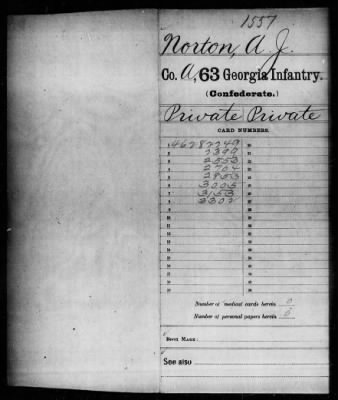 1557
Norton, A. J.
Co. A, 63 Georgia Infantry.
(Confederate.)
Private Private
CARD NUMBERS.
1 46282249
2 2399
3 2553
4 2704
5 2853
6 3005
7 3153
8 3302
Number of medical cards herein 0
Number of personal papers herein 0
BOOK MARK:
See also